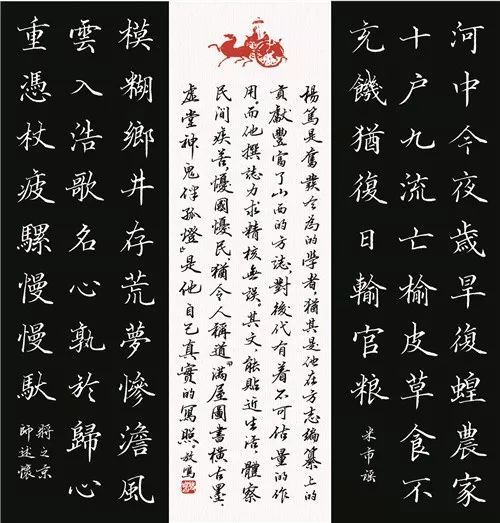 河中今夜歲早復蝗農家
十户九流亡榆皮草食不
充饑猶復日輸官粮
米市謡
楊篤是奮發令為的學者,猶其是他在方志編纂上的
貢獻豐富了山西的方誌,對後代有着不可估量的作
用,而他撰誌力求精核無誤,其文,能貼近生活,體察
民间疾苦,憂國憂民,猶令人稱道“滿屋圖書橫古墨,
虛堂神鬼伴孤燈”是他自己真實的寫照。敬寫
模糊鄉井存荒夢慘澹風
雲入浩歌名心孰於歸心
重憑杖疲騾慢慢馱
將之京
師述懷